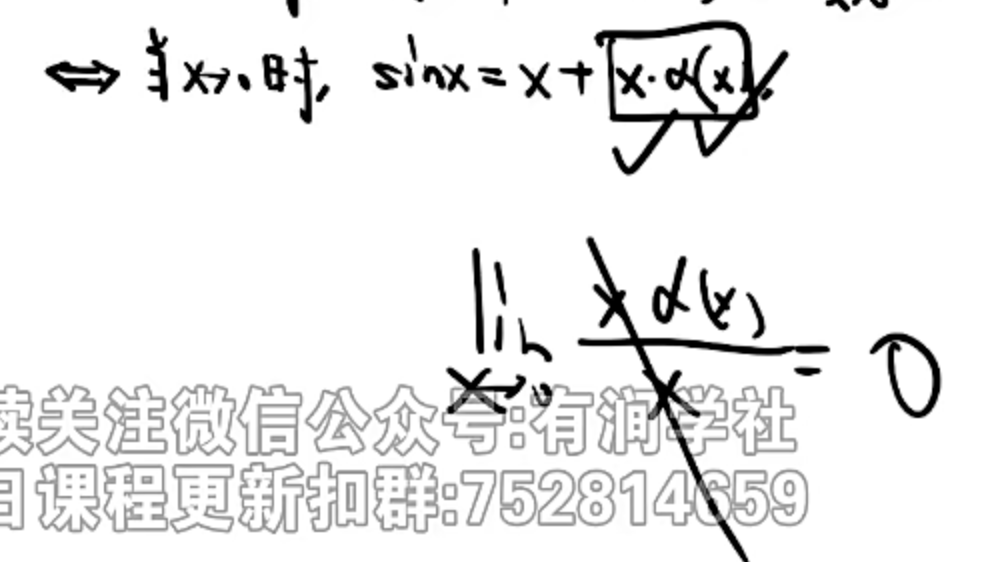 ⇔ 当x→0时, sinx = x + x·α(x).
lim x→0 xα(x)/x = 0
续关注微信公众号:有润学社
日课程更新扣群:752814659